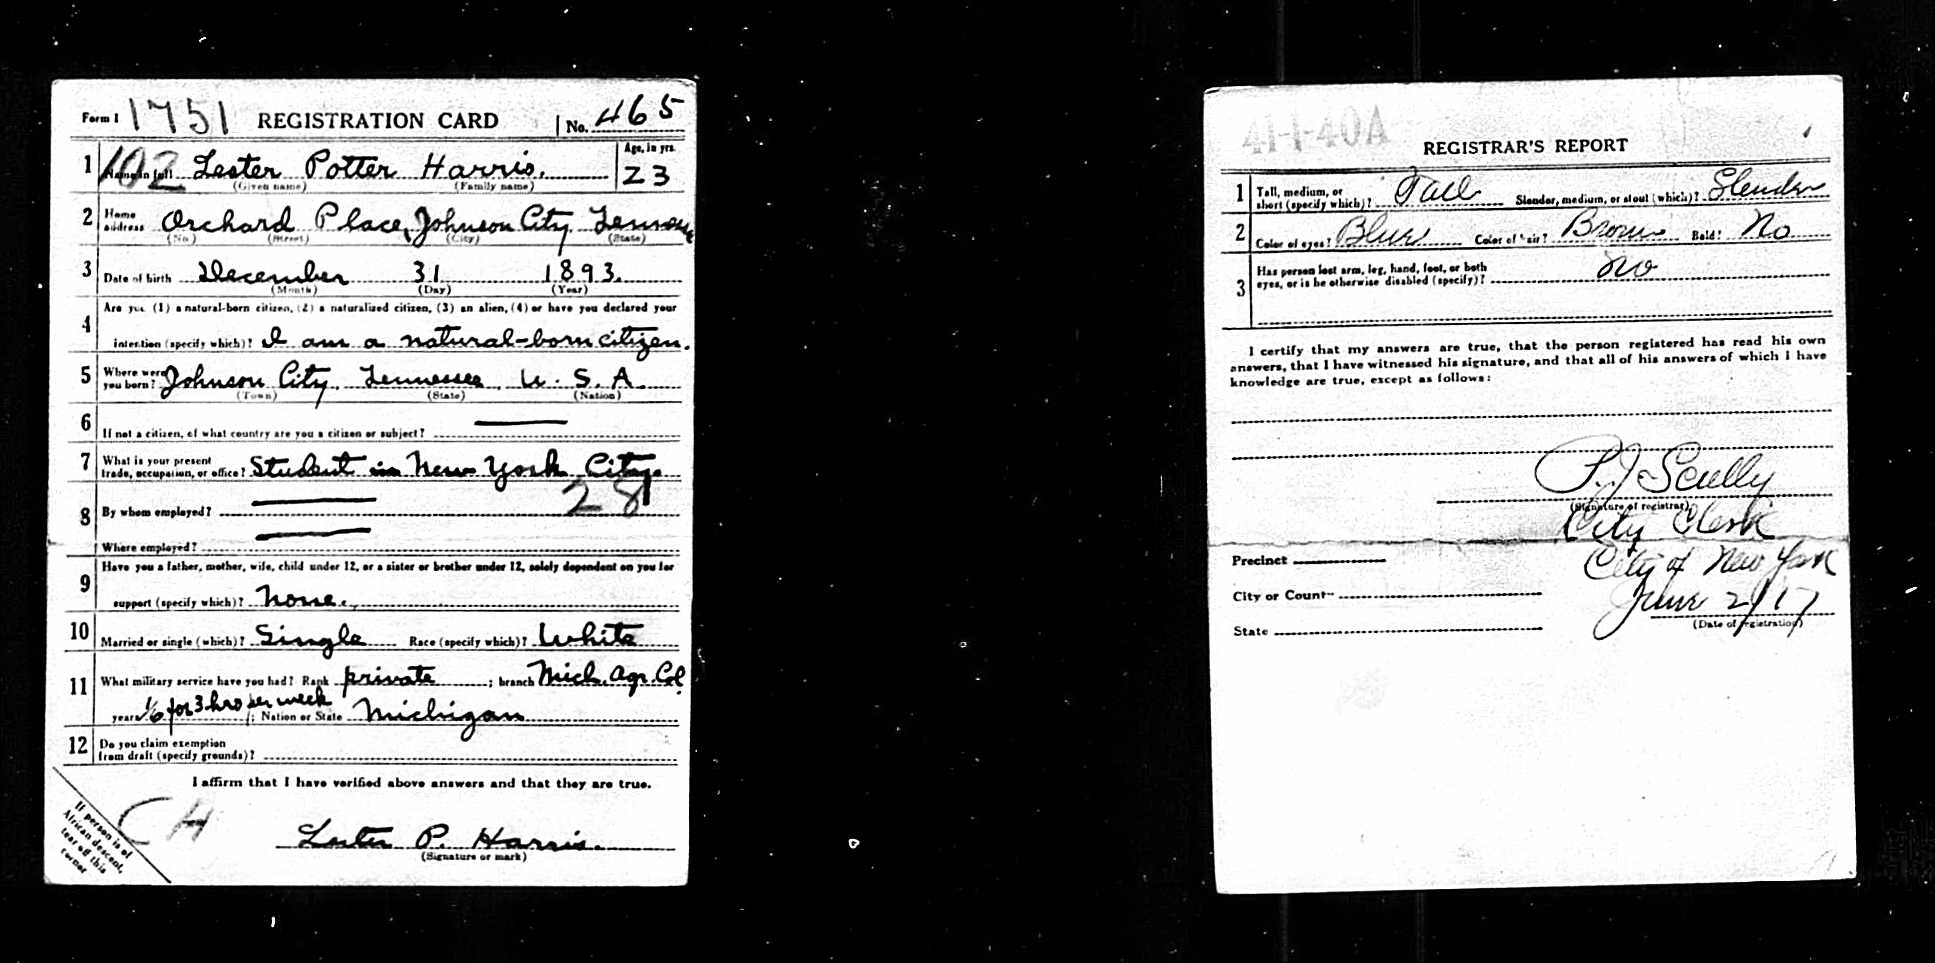 Form 1 1751 REGISTRATION CARD No. 465
1 102 Name in full Lester Potter Harris. Age, in yrs. 23
(Given name) (Family name)
2 Home address Orchard Place, Johnson City Tennessee
(No.) (Street) (City) (State)
3 Date of birth December 31 1893.
(Month) (Day) (Year)
4 Are you (1) a natural-born citizen, (2) a naturalized citizen, (3) an alien, (4) or have you declared your
intention (specify which)? I am a natural-born citizen.
5 Where were you born? Johnson City, Tennessee, U. S. A.
(Town) (State) (Nation)
6 If not a citizen, of what country are you a citizen or subject?
7 What is your present
trade, occupation, or office? Student in New York City.
28
8 By whom employed?
Where employed?
9 Have you a father, mother, wife, child under 12, or a sister or brother under 12, solely dependent on you for
support (specify which)? None.
10 Married or single (which)? Single Race (specify which)? White
11 What military service have you had? Rank private ; branch Mich. Agr. Col.
years 1/6 for 3 hrs per week ; Nation or State Michigan
12 Do you claim exemption
from draft (specify grounds)?
I affirm that I have verified above answers and that they are true.
CH
Lester P. Harris.
(Signature or mark)
If person is of
African descent,
tear off this
corner
41-1-40A
REGISTRAR'S REPORT
1 Tall, medium, or
short (specify which)? Tall Slender, medium, or stout (which)? Slender
2 Color of eyes? Blue Color of hair? Brown Bald? No
3 Has person lost arm, leg, hand, foot, or both
eyes, or is he otherwise disabled (specify)? No
I certify that my answers are true, that the person registered has read his own
answers, that I have witnessed his signature, and that all of his answers of which I have
knowledge are true, except as follows:
P. J. Scully
(Signature of registrar)
City Clerk
Precinct City of New York
City or County June 2/17
State (Date of registration)